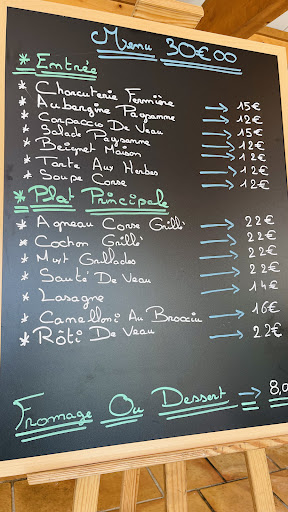 Menu 30€00
* Entrée
* Charcuterie Fermière → 15€
* Aubergine Paysanne → 12€
* Carpaccio De Veau → 15€
* Salade Paysanne → 12€
* Beignet Maison → 12€
* Tarte Aux Herbes → 12€
* Soupe Corse → 12€
* Plat Principale
* Agneau Corse Grillé → 22€
* Cochon Grillé → 22€
* Mixt Grillades → 22€
* Sauté De Veau → 22€
* Lasagne → 14€
* Canelloni Au Brocciu → 16€
* Rôti De Veau → 22€
Fromage Ou Dessert → 8,0